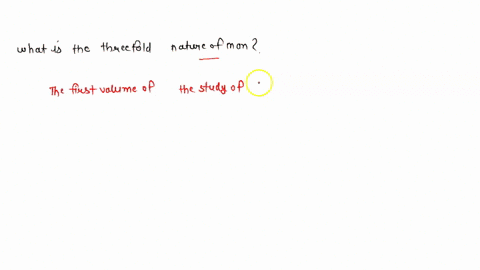 what is the threefold nature of man?
The first volume of the study of